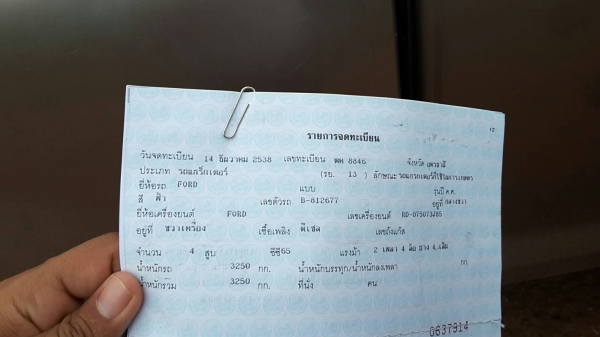 12
รายการจดทะเบียน
วันจดทะเบียน 14 ธันวาคม 2538 เลขทะเบียน ตค 8846 จังหวัด อุดรธานี
ประเภท รถแทรกเตอร์ (รย. 13 ) ลักษณะ รถแทรกเตอร์ที่ใช้ในการเกษตร
ยี่ห้อรถ FORD แบบ รุ่นปี ค.ศ.
สี ฟ้า เลขตัวรถ B-812677 อยู่ที่
ยี่ห้อเครื่องยนต์ FORD เลขเครื่องยนต์
อยู่ที่ ขวาเครื่อง เชื้อเพลิง ดีเซล เลขถังแก๊ส
จำนวน 4 สูบ ซีซี 65 แรงม้า 2 เพลา 4 ล้อ ยาง 4 เส้น
น้ำหนักรถ 3250 กก. น้ำหนักบรรทุก/น้ำหนักลงเพลา กก.
น้ำหนักรวม 3250 กก. ที่นั่ง คน
0637914